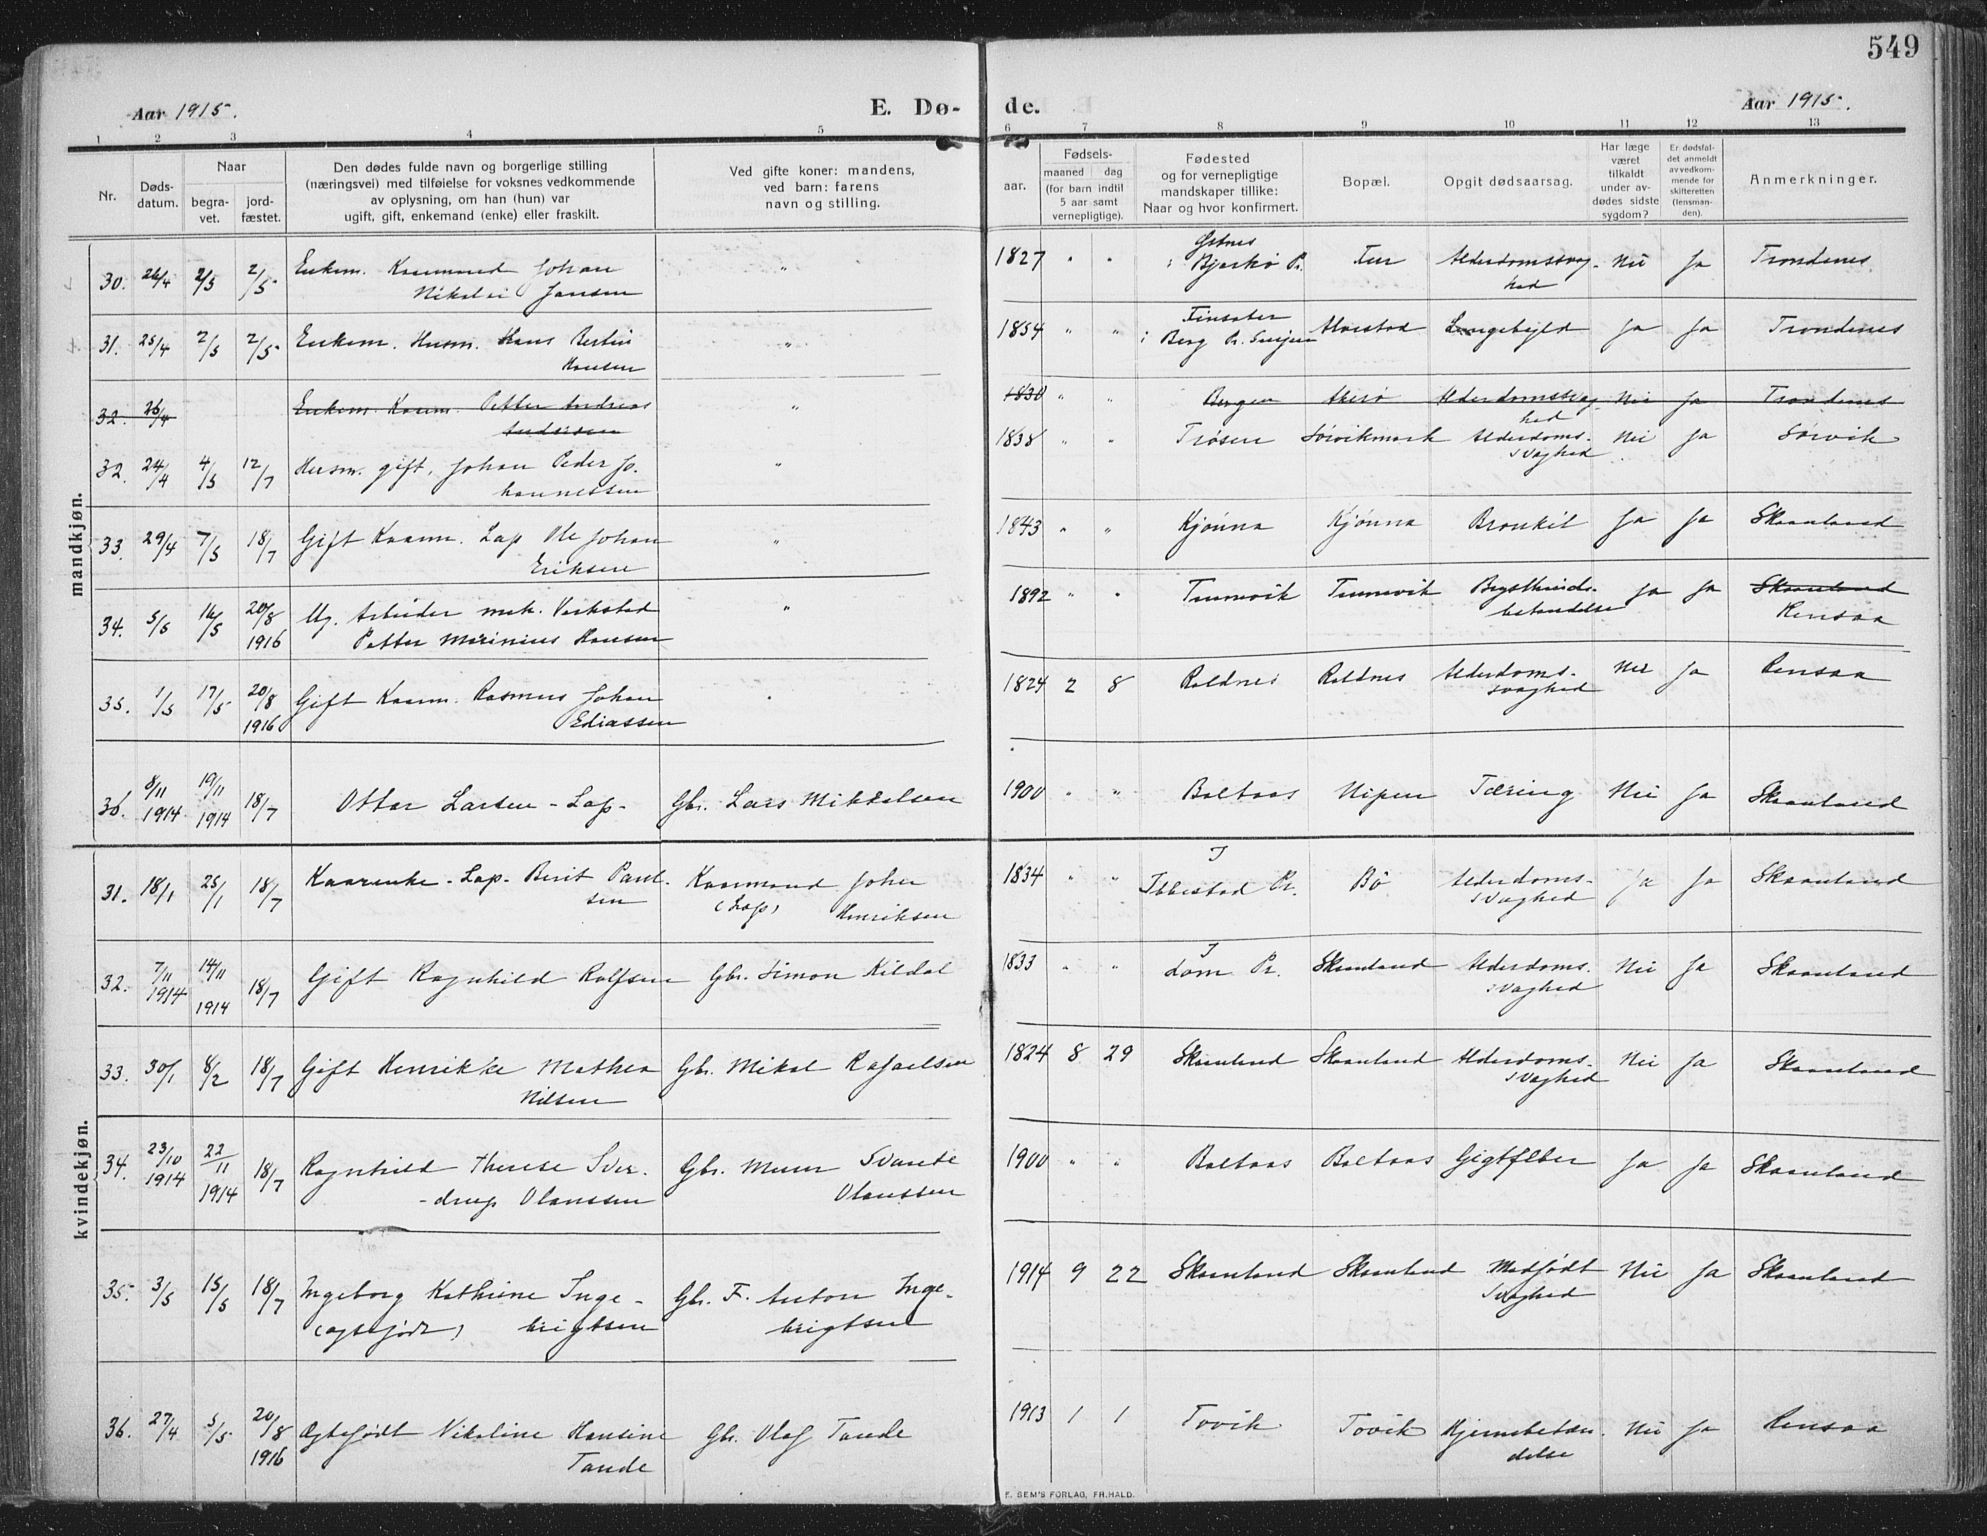 549
Aar 1915.
E. Dø-
de.
Aar 1915.
1 2 3 4 5 6 7 8 9 10 11 12 13
Nr.
Døds-
datum.
Naar
begra-
vet.
jord-
fæstet.
Den dødes fulde navn og borgerlige stilling
(næringsvei) med tilføielse for voksnes vedkommende
av oplysning, om han (hun) var
ugift, gift, enkemand (enke) eller fraskilt.
Ved gifte koner: mandens,
ved barn: farens
navn og stilling.
Fødsels-
aar.
maaned dag
(for barn indtil
5 aar samt
vernepligtige).
Fødested
og for vernepligtige
mandskaper tillike:
Naar og hvor konfirmert.
Bopæl.
Opgit dødsaarsag.
Har læge
været
tilkaldt
under av-
dødes sidste
sygdom?
Er dødsfal-
det anmeldt
av vedkom-
mende for
skifteretten
(lensman-
den).
Anmerkninger.
mandkjøn.
30. 26/4 2/5 2/5 Enkem. Kaarmand Johan " 1827 " " i Bjarkø P. Alderdomssvag- Nei Ja Trondenes
Nikolai Jansen hed
31. 25/4 2/5 2/5 Enkem. Husm. Hans Bertin " 1854 " " i Berg P. Senjen Alvestad Lungebyld Ja Ja Trondenes
Hansen
32. 26/4 Enkem. Kaarm. Petter Andreas " 1830 " " Bergen Akerø Alderdomssvag- Nei Ja Trondenes
Andersen hed
32. 24/4 4/5 12/7 Husm. gift, Johan Peder Jo- " 1838 " " Trøsen Sørvikmark Alderdoms- Nei Ja Sørvik
hannessen svaghed
33. 29/4 7/5 18/7 Gift Kaarm. Lap Ole Johan " 1843 " " Kjønna Kjønna Bronkit Ja Ja Skaanland
Eriksen
34. 5/5 16/5 20/8 Ug. Arbeider mek. Verksted " 1892 " " Tennevik Tennevik Brysthinde- Ja Ja Skaanland
1916 Petter Marinius Hansen betændelse Rensaa
35. 1/5 17/5 20/8 Gift Kaarm. Rasmus Johan " 1824 2 8 Roldnes Roldnes Alderdoms- Nei Ja Rensaa
1916 Eliassen svaghed
36. 8/11 1914 19/11 1914 18/7 Ottar Larsen - Lap - Gbr. Lars Mikkelsen 1900 " " Boltaas Nipen Tæring Nei Ja Skaanland
kvindekjøn.
31. 18/1 25/1 18/7 Kaarenke - Lap - Berit Paul- Kaarmand Johan 1834 " " I Ibbestad Pr. Bø Alderdoms- Ja Ja Skaanland
sen (Lap) Henriksen svaghed
32. 7/11 1914 14/11 1914 18/7 Gift Ragnhild Rolfsen Gbr. Simon Kildal 1833 " " I Lom Pr. Skaanland Alderdoms- Nei Ja Skaanland
svaghed
33. 30/1 8/2 18/7 Gift Henrikke Mathea Gbr. Mikal Rafaelsen 1824 8 29 Skaanland Skaanland Alderdoms- Nei Ja Skaanland
Nilsen svaghed
34. 23/10 1914 22/11 1914 18/7 Ragnhild Therese Sver- Gbr. Svande 1900 " " Boltaas Boltaas Gigtfeber Ja Ja Skaanland
-drup Olaussen Olaussen
35. 3/5 15/5 18/7 Ingeborg Kathrine Inge- Gbr. F. Anton Inge- 1914 9 22 Skaanland Skaanland Medfødt Nei Ja Skaanland
(egtefødt) brigtsen brigtsen svaghed
36. 27/4 5/5 20/8 Egtefødt Nikoline Hansine Gbr. Olaf Tande 1913 1 1 Tovik Tovik Hjernebetæn- Nei Ja Rensaa
1916 Tande delse
E. SEM'S FORLAG, FR.HALD.